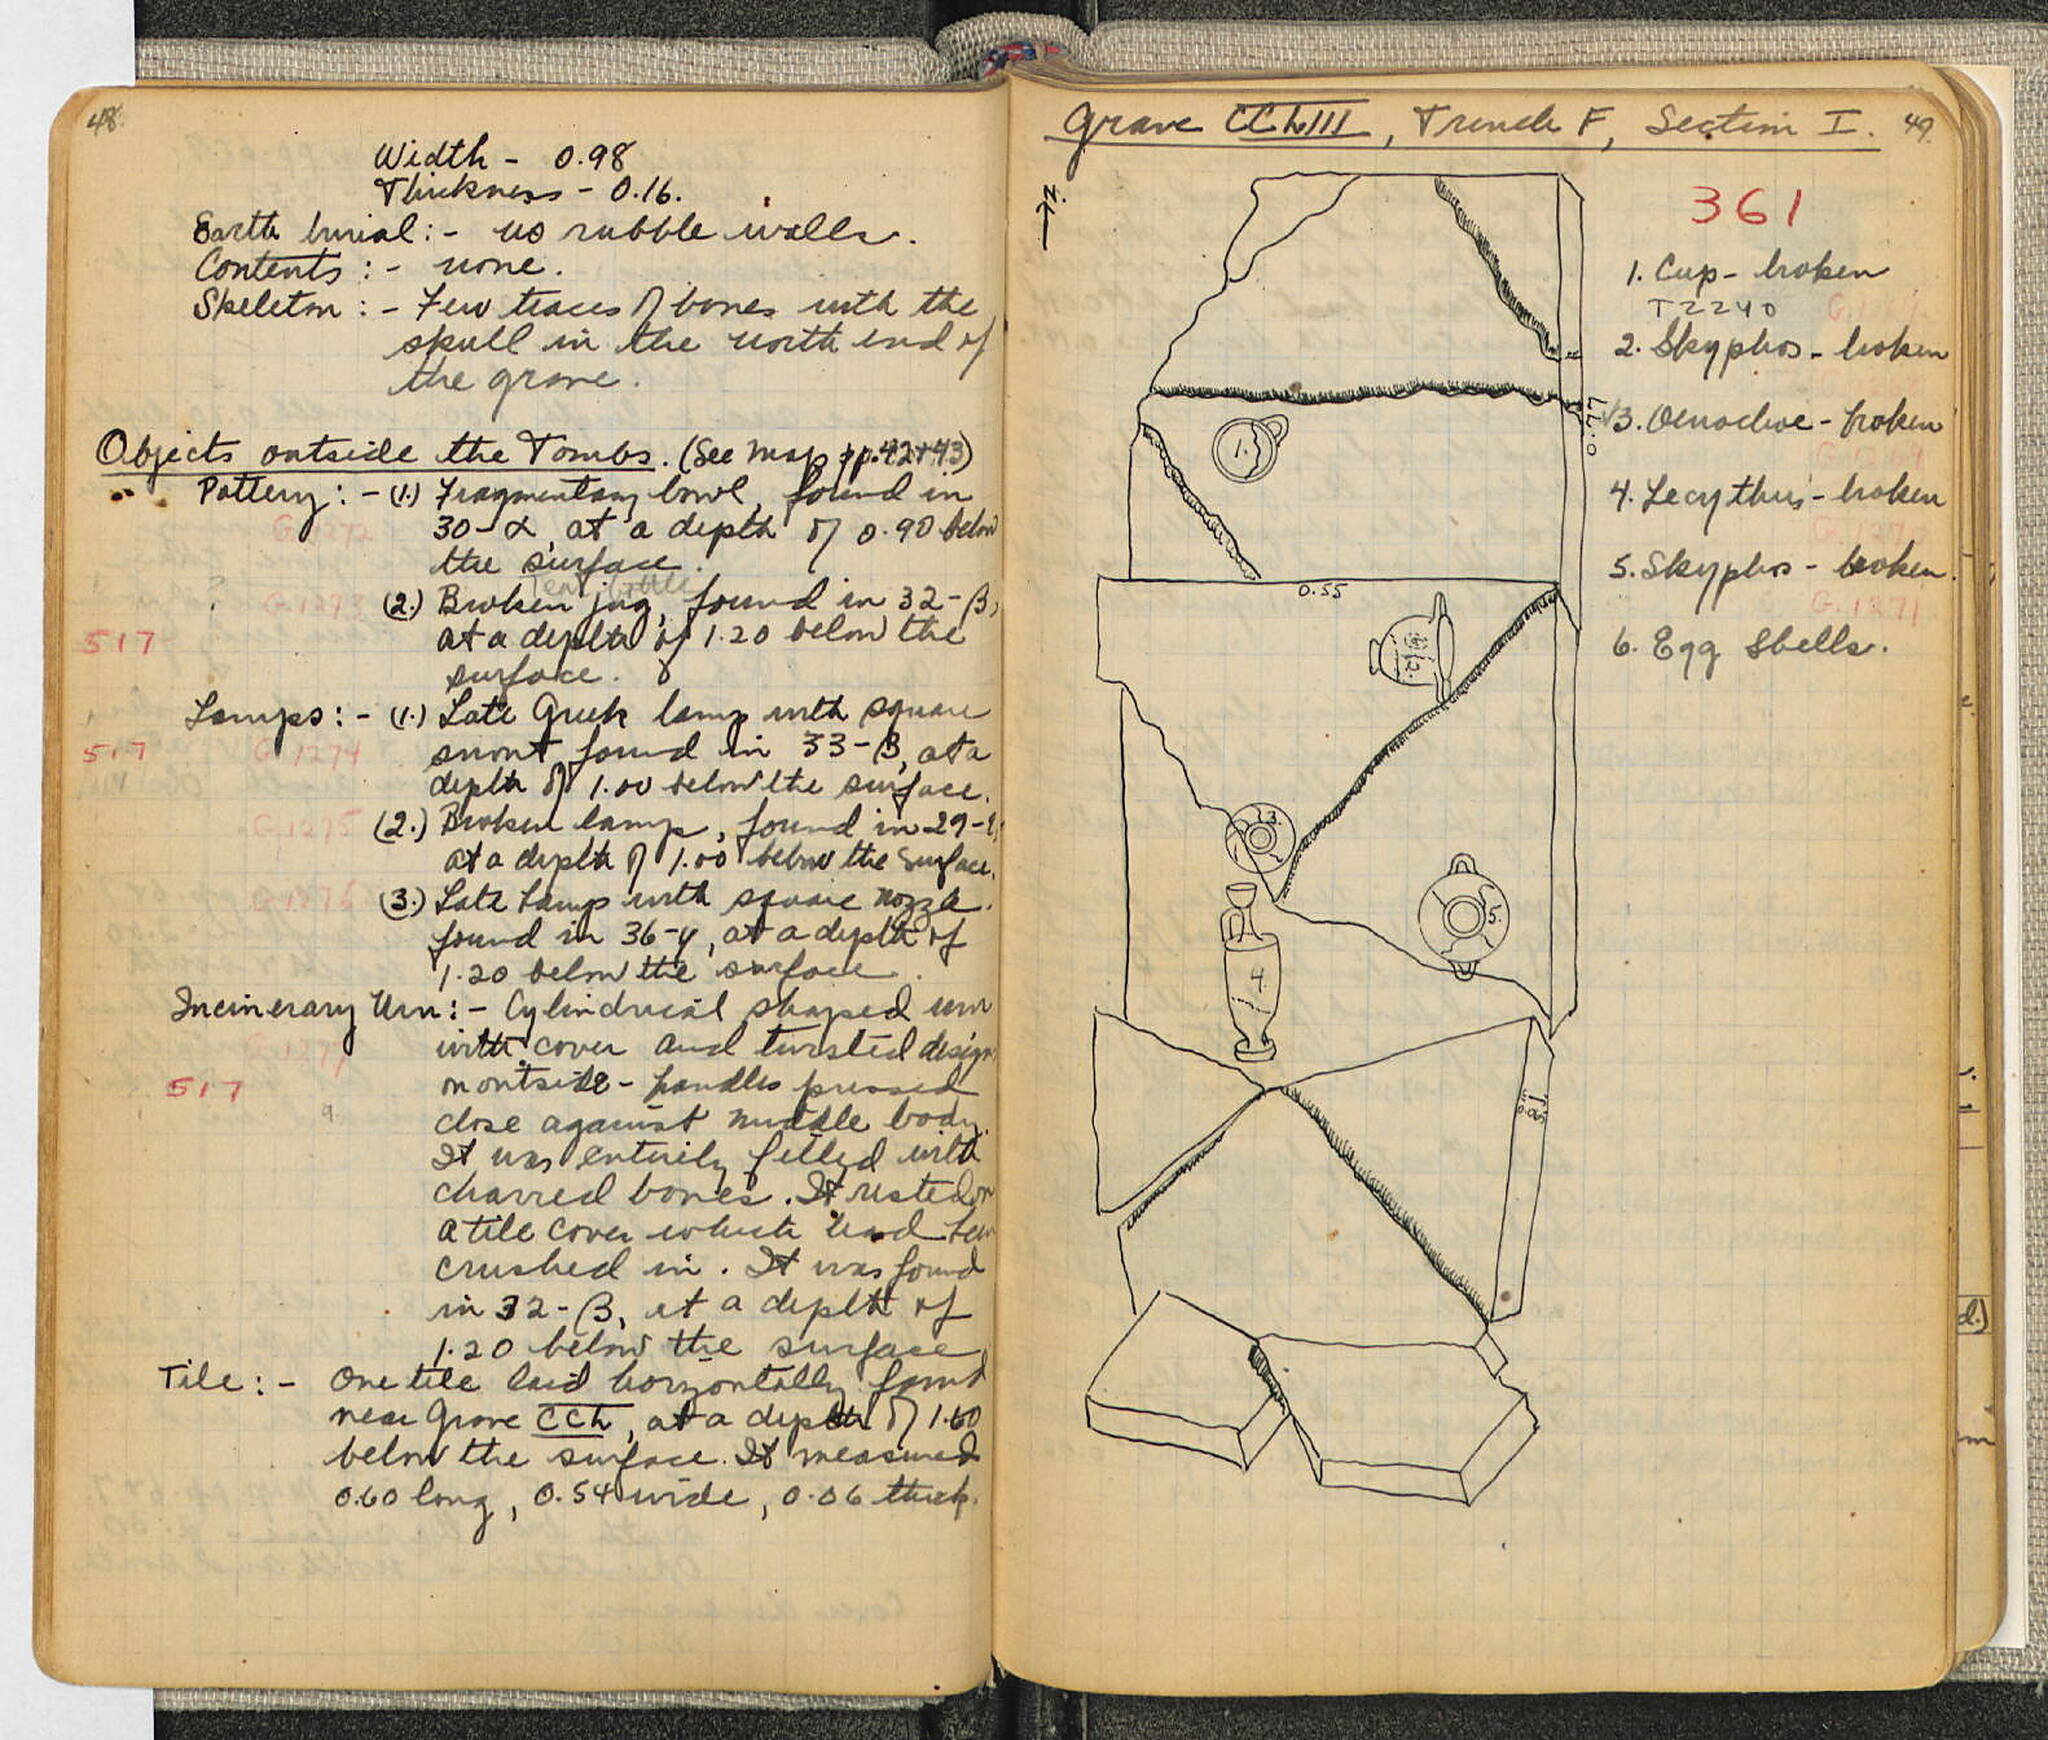 48.
Width - 0.98
Thickness - 0.16.
Earth burial :- no rubble walls.
Contents :- none.
Skeleton :- Few traces of bones with the
skull in the north end of
the grave.
Objects outside the Tombs. (See Map pp. 42+43)
Pottery :- (1.) Fragmentary bowl, found in
G.1272
30-α, at a depth of 0.90 below
the surface.
(2.) Broken jug, found in 32-β,
? G.1273
517 at a depth of 1.20 below the
surface.
Lamps :- (1.) Late Greek lamp with square
517 G.1274 snout found in 33-β, at a
depth of 1.00 below the surface.
G.1275 (2.) Broken lamp, found in 29-
at a depth of 1.00 below the surface.
G.1276 (3.) Late Lamp with square nozzle.
found in 36-γ, at a depth of
1.20 below the surface.
Incinerary Urn :- Cylindrical shaped urn
G.1277 with cover and twisted design
517 on outside - handles pressed
close against middle body.
It was entirely filled with
charred bones. It rested on
a tile cover which had been
crushed in. It was found
in 32-β, at a depth of
1.20 below the surface
Tile :- One tile laid horizontally found
near Grave CCh, at a depth of 1.60
below the surface. It measured
0.60 long, 0.54 wide, 0.06 thick.
Grave CChIII, Trench F, Section I. 49.
N.
361
1. Cup - broken
T2240
2. Skyphos - broken
√3. Oenochoe - broken
4. Lecythus - broken
5. Skyphos - broken.
G.1271
6. Egg Shells.
0.77
1.
0.55
3.
5.
4.